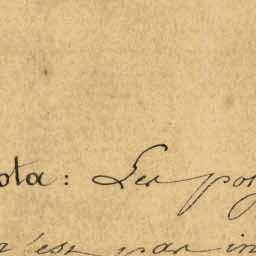 ota : Les po
n'est pas in